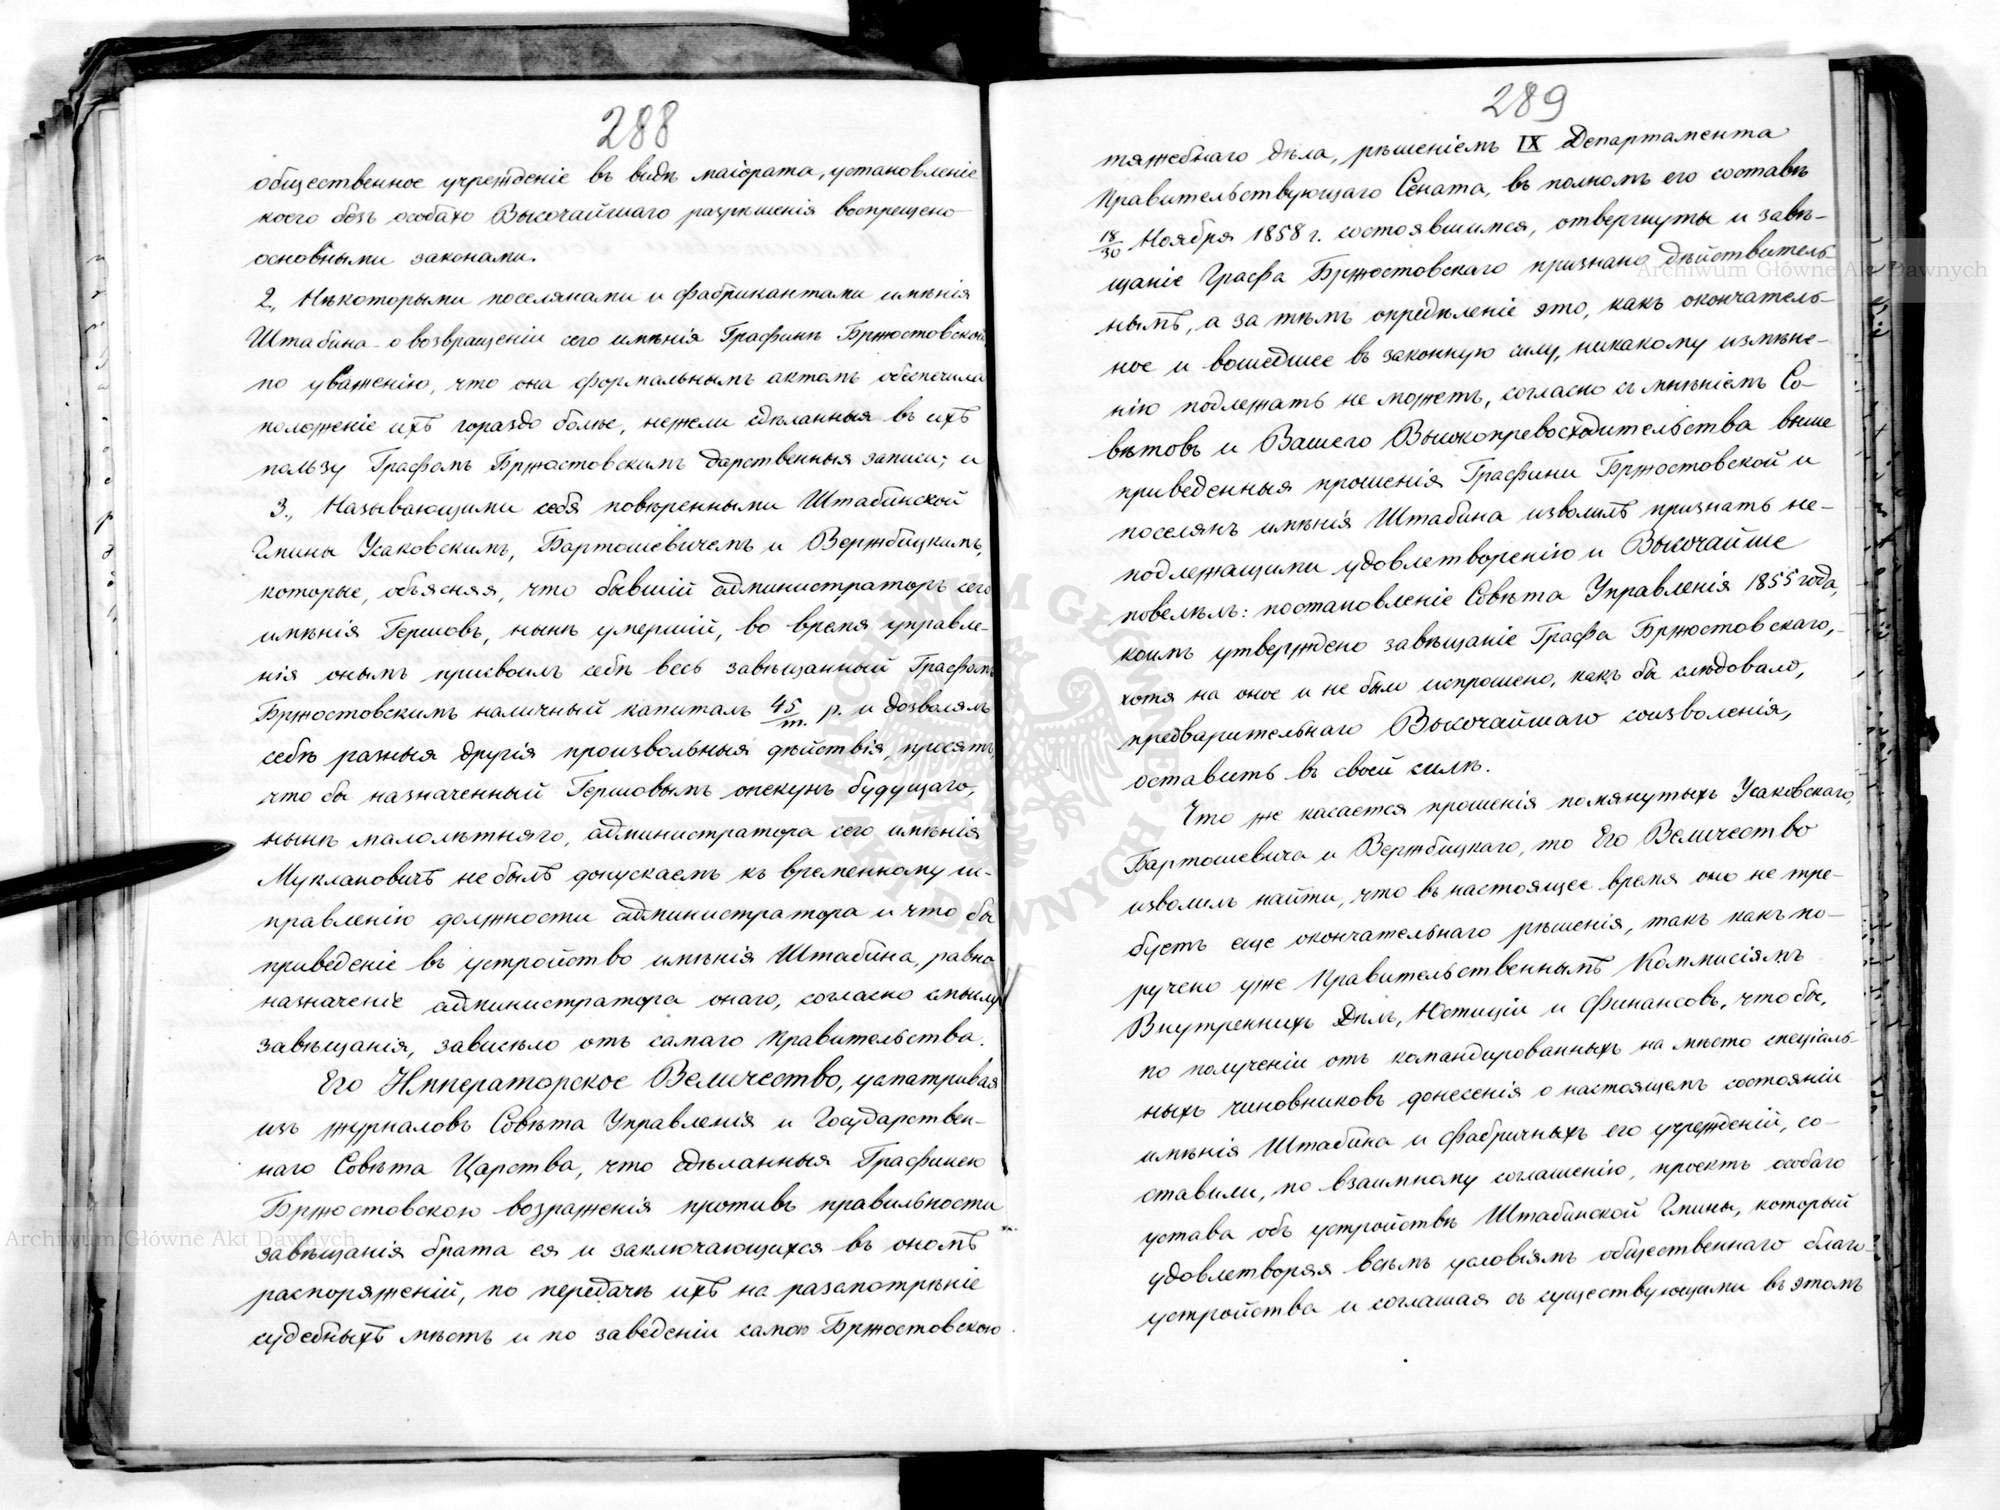 288
общественное учрежденіе въ видѣ маіората, установленіе
коего безъ особаго Высочайшаго разрѣшенія воспрещено
основными законами.
2., Нѣкоторыми поселянами и фабрикантами имѣнія
Штабина - о возвращеніи сего имѣнія Графинѣ Бржостовской,
по уваженію, что она формальнымъ актомъ обезпечила
положеніе ихъ гораздо болѣе, нежели сдѣланныя въ ихъ
пользу Графомъ Бржостовскимъ дарственныя записи; и
3., Называющими себя повѣренными Штабинской
Гмины Усаковскимъ, Бартошевичемъ и Вержбицкимъ,
которые, объясняя, что бывшій администраторъ сего
имѣнія Гершовъ, нынѣ умершій, во время управле-
нія онымъ присвоилъ себѣ весь завѣщанный Графомъ
Бржостовскимъ наличный капиталъ 45/т. р. и дозволялъ
себѣ разныя другія произвольныя дѣйствія, просятъ,
что бы назначенный Гершовымъ опекунъ будущаго,
нынѣ малолѣтняго, администратора сего имѣнія
Муклановичъ не былъ допускаемъ къ временному ис-
правленію должности администратора и что бы
приведеніе въ устройство имѣнія Штабина, равно
назначеніе администратора онаго, согласно смыслу
завѣщанія, зависѣло отъ самаго Правительства.
Его Императорское Величество, усматривая
изъ журналовъ Совѣта Управленія и Государствен-
наго Совѣта Царства, что сдѣланныя Графинею
Бржостовскою возраженія противъ правильности
завѣщанія брата ея и заключающихся въ ономъ
распоряженій, по передачѣ ихъ на разсмотрѣніе
судебныхъ мѣстъ и по заведеніи самою Бржостовскою
289
тяжебнаго дѣла, рѣшеніемъ IX Департамента
Правительствующаго Сената, въ полномъ его составѣ
18/30 Ноября 1858 г. состоявшимся, отвергнуты и завѣ-
щаніе Графа Бржостовскаго признано дѣйствитель-
нымъ, а за тѣмъ опредѣленіе это, какъ окончатель-
ное и вошедшее въ законную силу, никакому измѣне-
нію подлежать не можетъ, согласно съ мнѣніемъ Со-
вѣтовъ и Вашего Высокопревосходительства выше
приведенныя прошенія Графини Бржостовской и
поселянъ имѣнія Штабина изволилъ признать не-
подлежащими удовлетворенію и Высочайше
повелѣлъ: постановленіе Совѣта Управленія 1855 года,
коимъ утверждено завѣщаніе Графа Бржостовскаго,-
хотя на оное и не было испрошено, какъ бы слѣдовало,
предварительнаго Высочайшаго соизволенія,
оставить въ своей силѣ.
Что же касается прошенія помянутыхъ Усаковскаго,
Бартошевича и Вержбицкаго, то Его Величество
изволилъ найти, что въ настоящее время оно не тре-
буетъ еще окончательнаго рѣшенія, такъ какъ по-
ручено уже Правительственнымъ Коммисіямъ
Внутреннихъ Дѣлъ, Юстиціи и Финансовъ, что бы,
по полученіи отъ командированныхъ на мѣсто спеціаль-
ныхъ чиновниковъ донесенія о настоящемъ состояніи
имѣнія Штабина и фабричныхъ его учрежденій, со-
ставили, по взаимному соглашенію, проектъ особаго
устава объ устройствѣ Штабинской Гмины, который
удовлетворяя всѣмъ условіямъ общественнаго благо-
устройства и соглашая съ существующими въ этомъ
Archiwum Główne Akt Dawnych
Archiwum Główne Akt Dawnych
ARCHIWUM GŁÓWNE AKT DAWNYCH